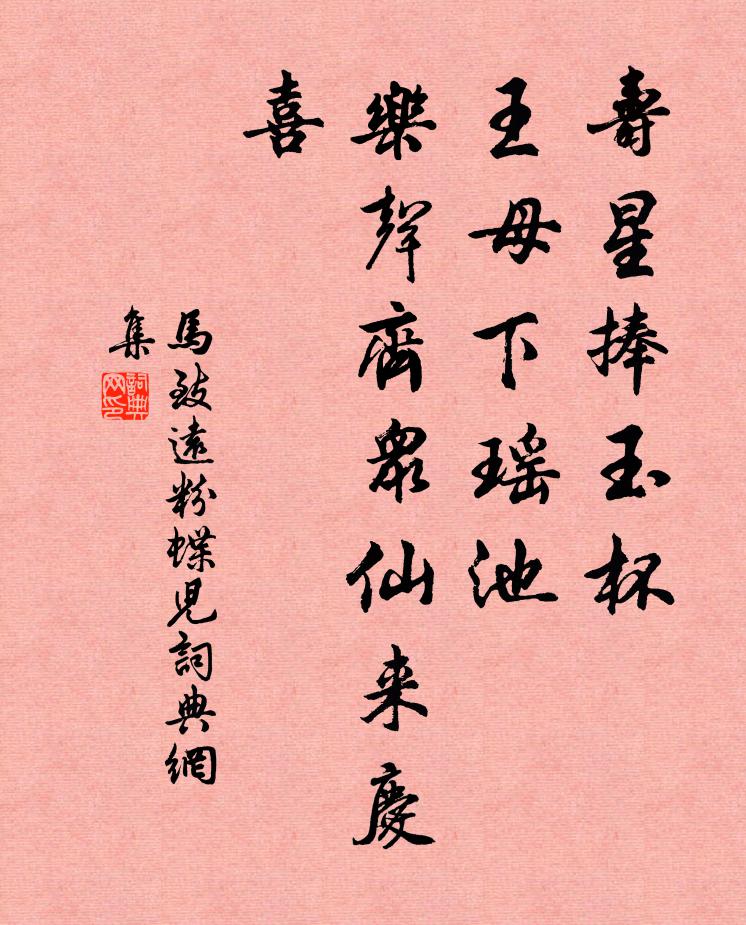 壽星捧玉杯
王母下瑶池
樂聲齊衆仙来慶
喜
馬致遠粉蝶兒詞典網
集
詞典
网印